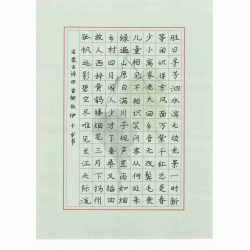 胜日寻芳泗水滨无边光景一时新
等闲识得东风面万紫千红总是春
少小离家老大回乡音无改鬓毛衰
儿童相见不相识笑问客从何处来
绿遍山原白满川子规声里雨如烟
乡村四月闲人少才了蚕桑又插田
故人西辞黄鹤楼烟花三月下扬州
孤帆远影碧空尽唯见长江天际流
右录古诗四首 十岁书